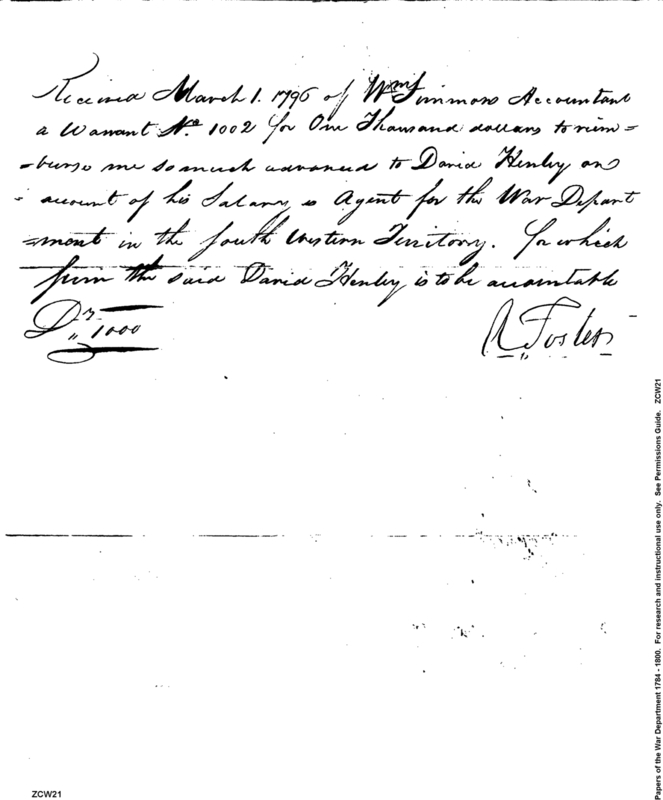 Received March 1. 1796 of Wm Simmons Accountant
a Warrant No. 1002 for One Thousand dollars to reim=
=burse me so much advanced to David Henley on
account of his Salary as Agent for the War Depart
=ment in the South Western Territory. for which
sum the said David Henley is to be accountable
Drs
" 1000
A Foster
Papers of the War Department 1784 - 1800. For research and instructional use only. See Permissions Guide. ZCW21
ZCW21